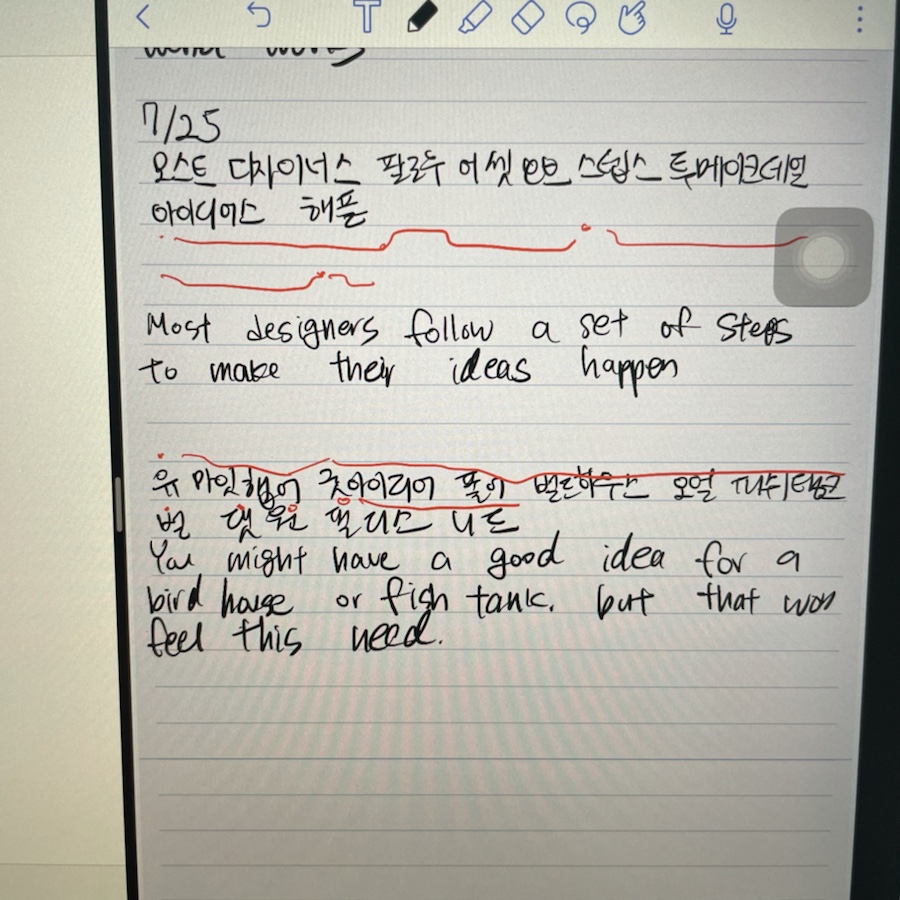 7/25
모스트 디자이너스 팔로우 어 셋 오브 스텝스 투메이크데얼
아이디어스 해픈
Most designers follow a set of steps
to make their ideas happen
유 마잇햅어 굿아이디어 폴어 벌드하우스 오얼 피쉬탱크
벋 댓 원 필 디스 니드
You might have a good idea for a
bird house or fish tank. but that won
feel this need.